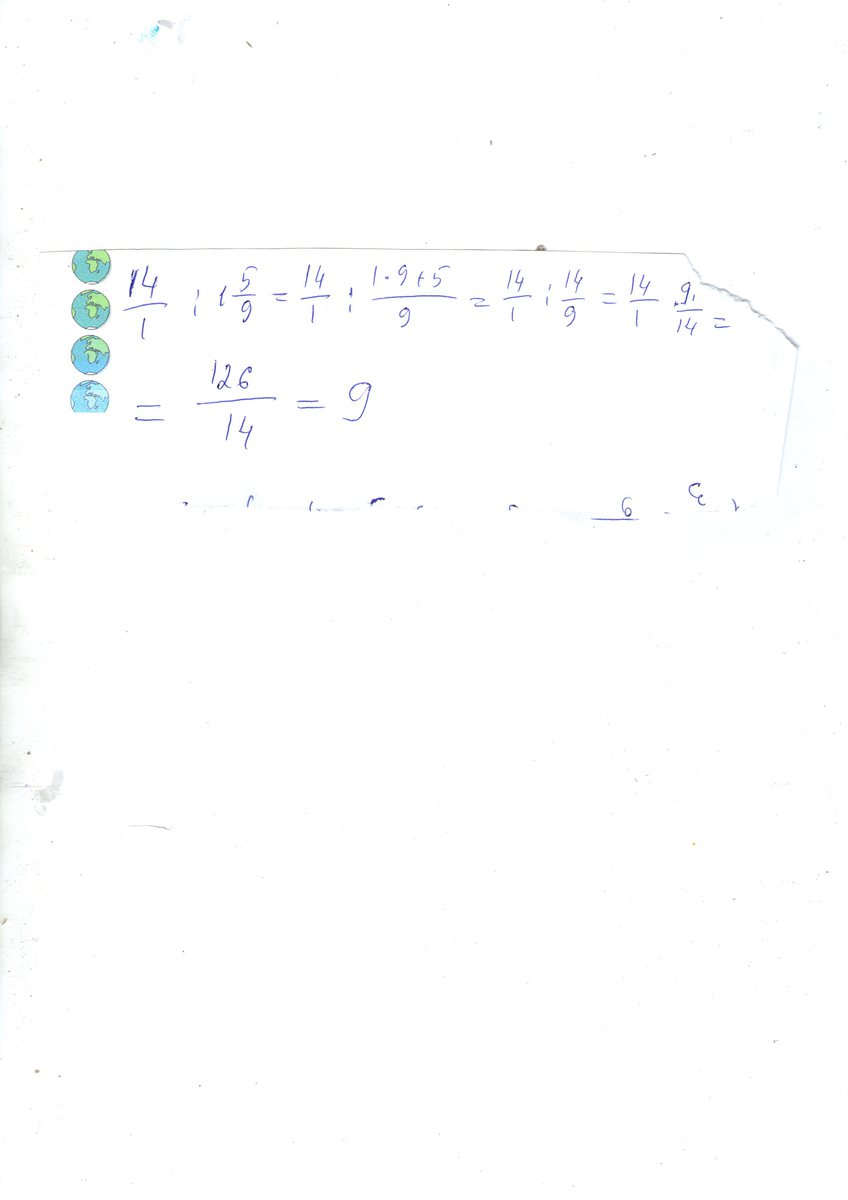 14/1 : 1 5/9 = 14/1 : (1·9+5)/9 = 14/1 : 14/9 = 14/1 · 9/14 =
= 126/14 = 9
6